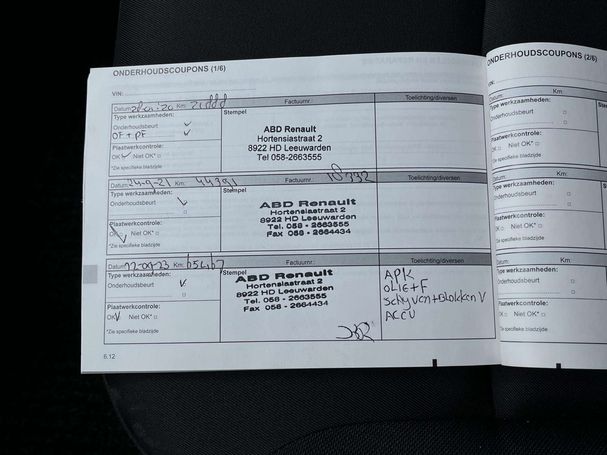 ONDERHOUDSCOUPONS (1/6)
VIN:
Datum: Km: Factuurnr.: Toelichting/diversen
Type werkzaamheden:
Onderhoudsbeurt
OF + PF
Plaatwerkcontrole:
OK Niet OK*
*Zie specifieke bladzijde
Stempel
ABD Renault
Hortensiastraat 2
8922 HD Leeuwarden
Tel 058-2663555
Datum: 24-9-21 Km: 44391 Factuurnr.: Toelichting/diversen
Type werkzaamheden:
Onderhoudsbeurt
Plaatwerkcontrole:
OK Niet OK*
*Zie specifieke bladzijde
Stempel
ABD Renault
Hortensiastraat 2
8922 HD Leeuwarden
Tel. 058 - 2663555
Fax 058 - 2664434
Datum: Km: Factuurnr.: Toelichting/diversen
Type werkzaamheden:
Onderhoudsbeurt
Plaatwerkcontrole:
OK Niet OK*
*Zie specifieke bladzijde
Stempel
ABD Renault
Hortensiastraat 2
8922 HD Leeuwarden
Tel. 058 - 2663555
Fax 058 - 2664434
APK
OLIE+F
SCHYVEN+BLOKKEN V
ACCU
6.12
ONDERHOUDSCOUPONS (2/6)
VIN:
Datum: Km:
Type werkzaamheden:
Onderhoudsbeurt
Plaatwerkcontrole:
OK Niet OK*
*Zie specifieke bladzijde
Datum: Km:
Type werkzaamheden:
Onderhoudsbeurt
Plaatwerkcontrole:
OK Niet OK*
*Zie specifieke bladzijde
Datum: Km:
Type werkzaamheden:
Onderhoudsbeurt
Plaatwerkcontrole:
OK Niet OK*
*Zie specifieke bladzijde